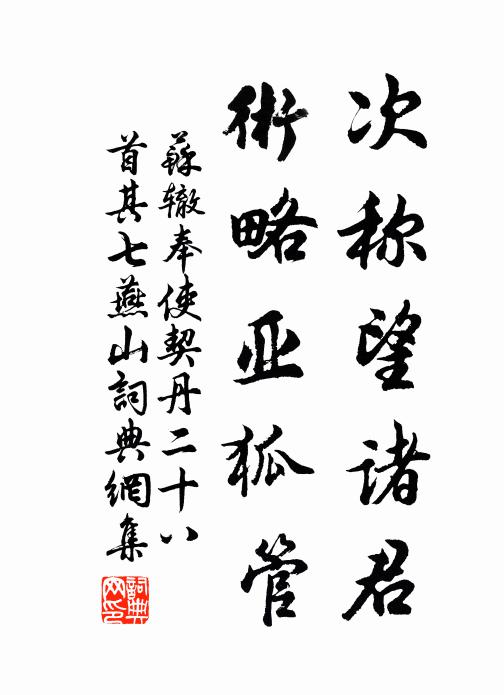 次称望诸君
術略亚狐管
蘇辙奉使契丹二十八
首其七燕山詞典網集
詞典
网印